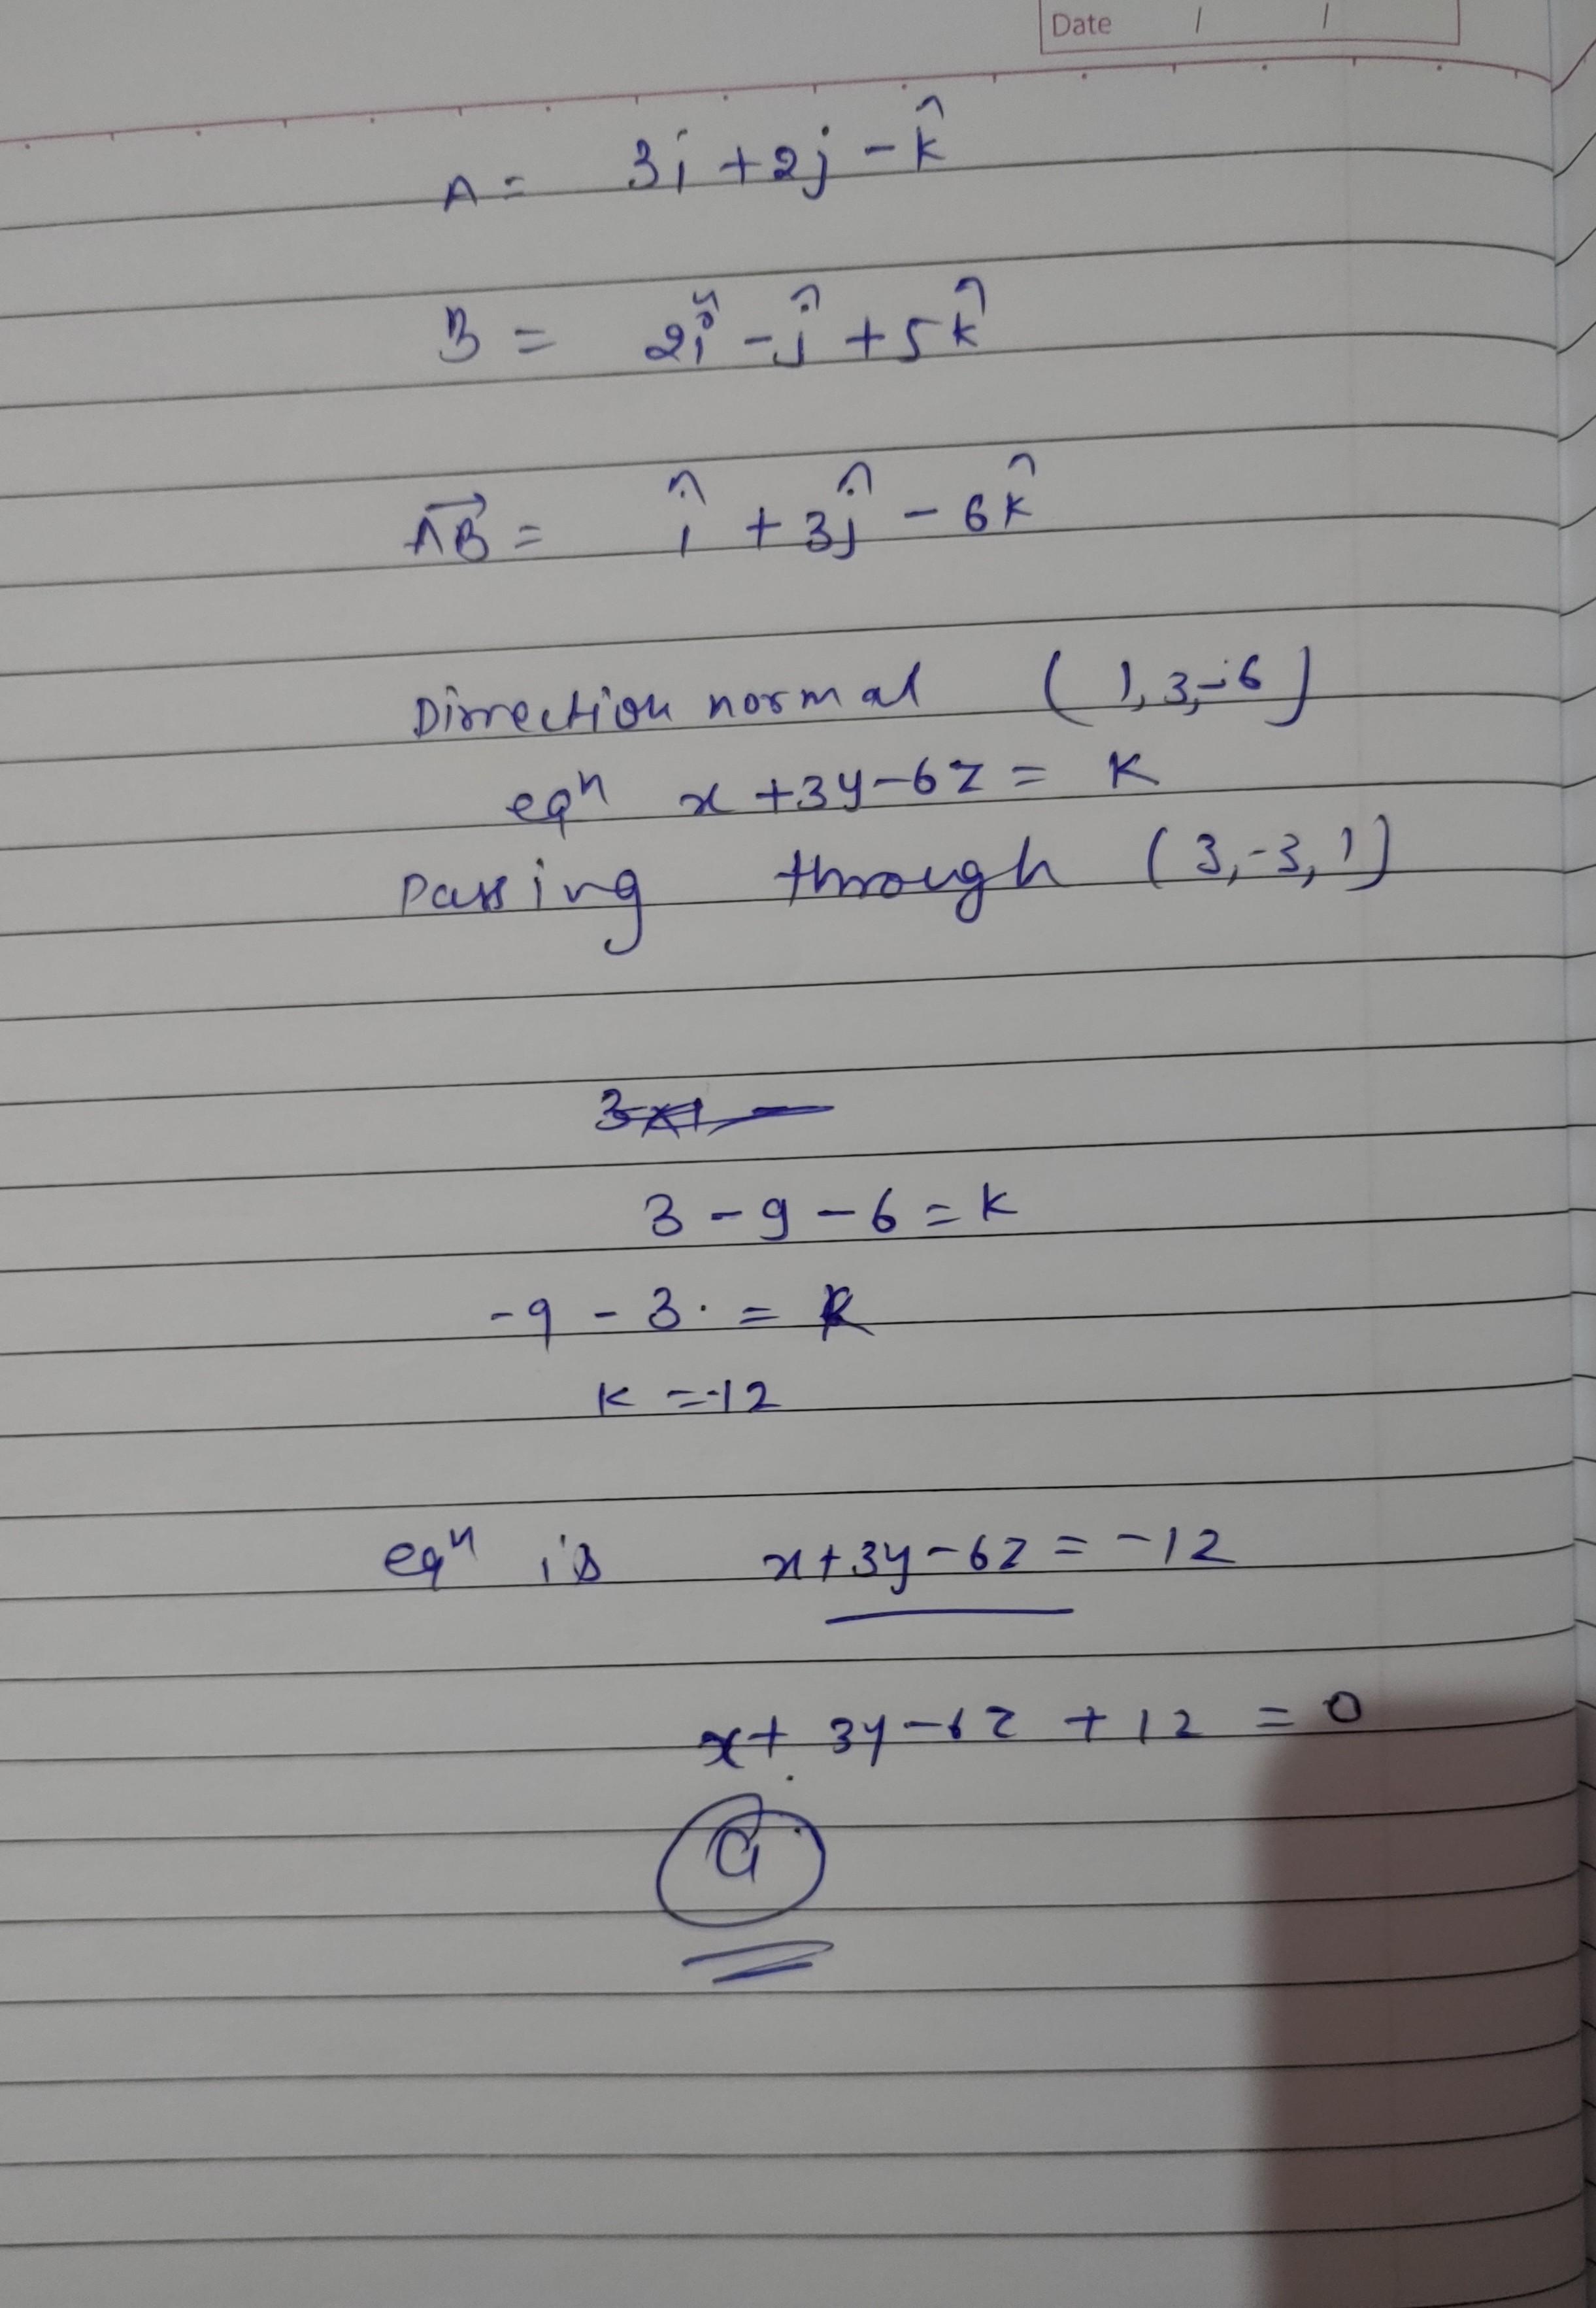 Date / /
A = 3i + 2j - k̂
B = 2î - ĵ + 5k̂
AB⃗ = î + 3ĵ - 6k̂
Dirrection normal (1, 3, -6)
eqⁿ x + 3y - 6z = K
Passing through (3, -3, 1)
3 - 9 - 6 = k
-9 - 3 = k
K = -12
eqⁿ is x + 3y - 6z = -12
x + 3y - 6z + 12 = 0
a